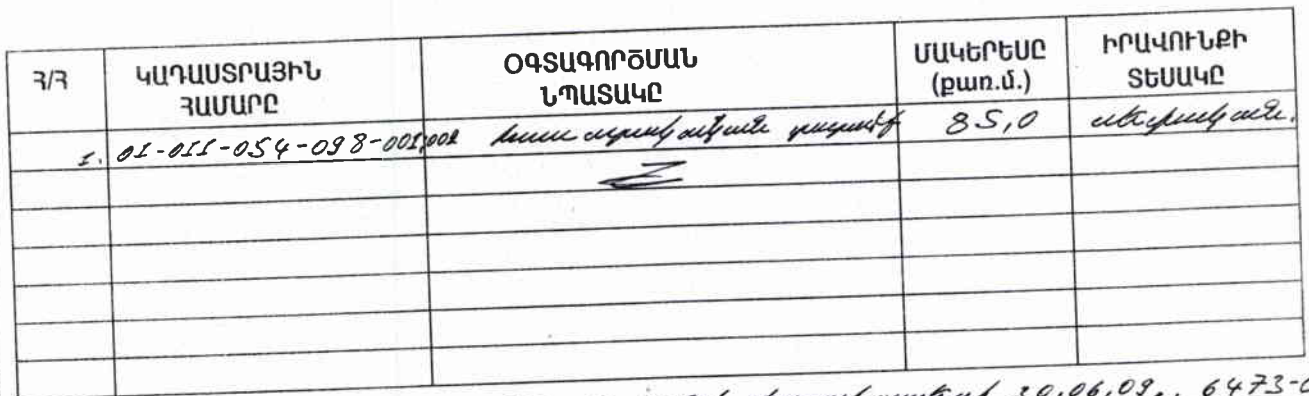 Հ/Հ
ԿԱԴԱՍՏՐԱՅԻՆ
ՀԱՄԱՐԸ
ՕԳՏԱԳՈՐԾՄԱՆ
ՆՊԱՏԱԿԸ
ՄԱԿԵՐԵՍԸ
(քառ.մ.)
ԻՐԱՎՈՒՆՔԻ
ՏԵՍԱԿԸ
1. 01-011-054-098-001,002 հասարակական 85,0 սեփական.
30.06.09